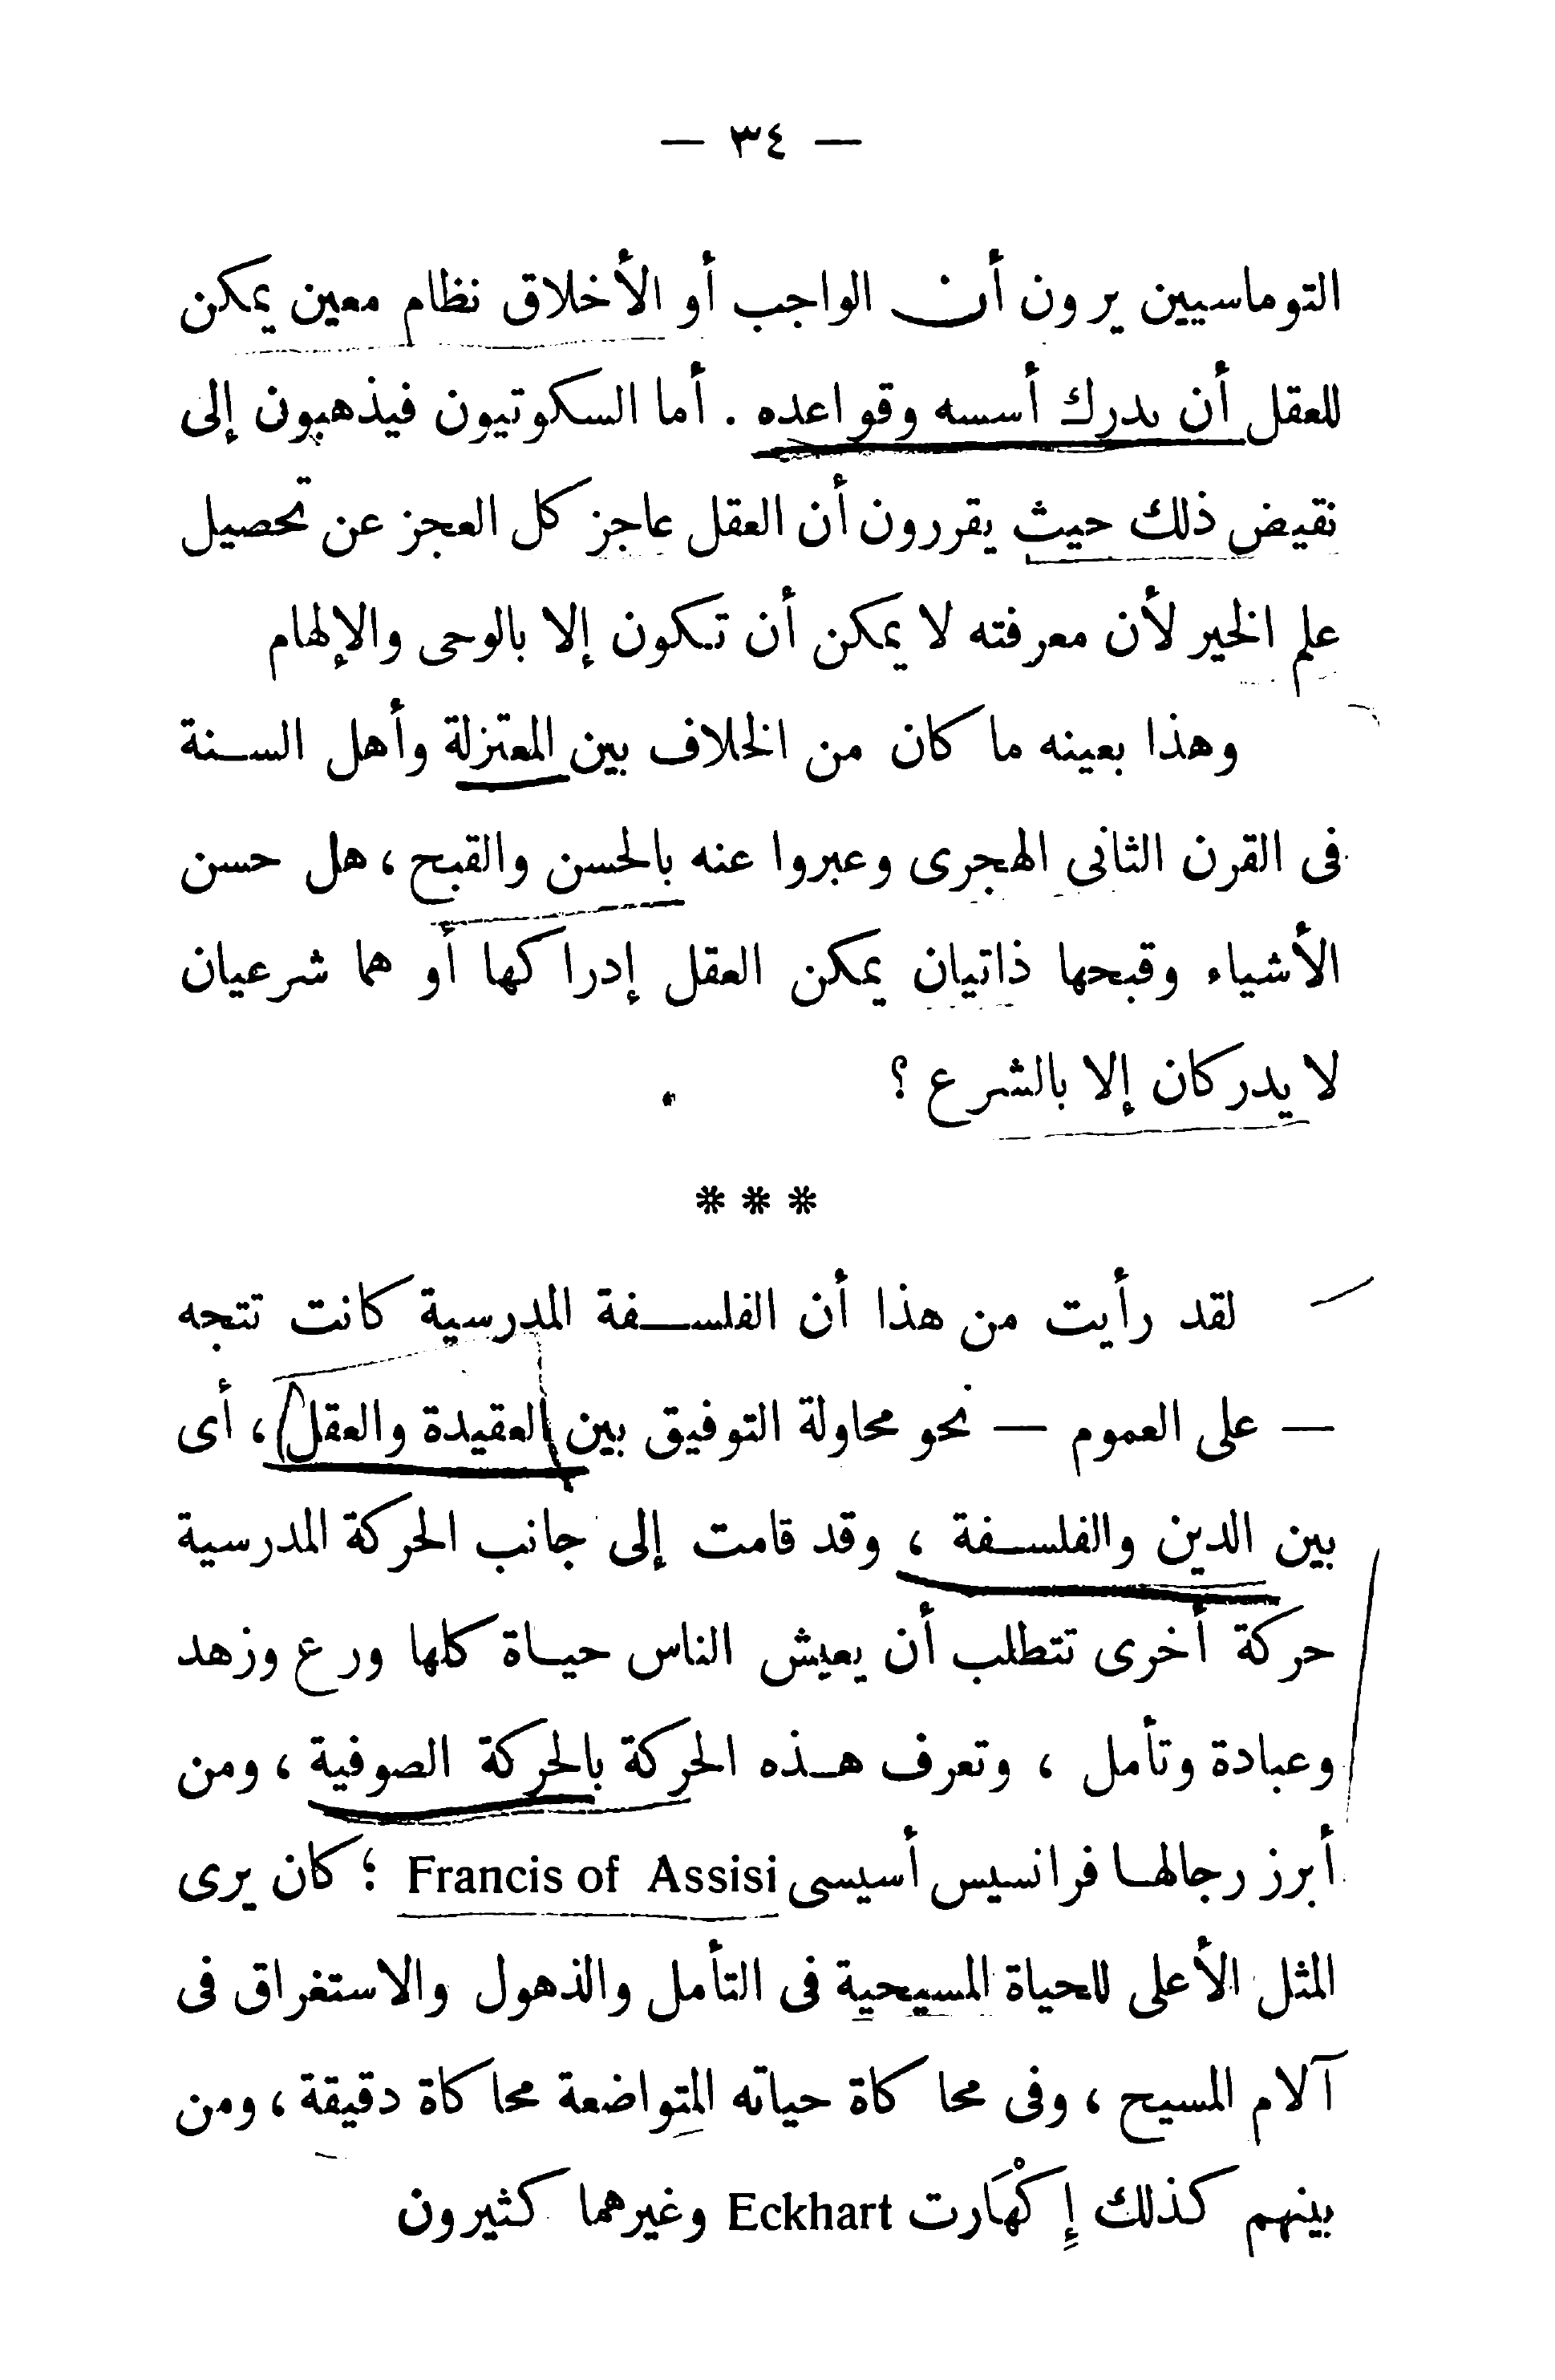 — ٣٤ —
التوماسيين يرون أن الواجب أو الأخلاق نظام معين يمكن
للعقل أن يدرك أسسه وقواعده . أما السكوتيون فيذهبون إلى
نقيض ذلك حيث يقررون أن العقل عاجز كل العجز عن تحصيل
علم الخير لأن معرفته لا يمكن أن تكون إلا بالوحى والإلهام
وهذا بعينه ما كان من الخلاف بين المعتزلة وأهل السنة
فى القرن الثانى الهجرى وعبروا عنه بالحسن والقبح ، هل حسن
الأشياء وقبحها ذاتيان يمكن العقل إدراكها أو هما شرعيان
لا يدركان إلا بالشرع ؟
* * *
لقد رأيت من هذا أن الفلسفة المدرسية كانت تتجه
— على العموم — نحو محاولة التوفيق بين العقيدة والعقل ، أى
بين الدين والفلسفة ، وقد قامت إلى جانب الحركة المدرسية
حركة أخرى تتطلب أن يعيش الناس حياة كلها ورع وزهد
وعبادة وتأمل ، وتعرف هذه الحركة بالحركة الصوفية ، ومن
أبرز رجالها فرانسيس أسيسى Francis of Assisi ؛ كان يرى
المثل الأعلى للحياة المسيحية فى التأمل والذهول والاستغراق فى
آلام المسيح ، وفى محاكاة حياته المتواضعة محاكاة دقيقة ، ومن
بينهم كذلك إِكْهَارت Eckhart وغيرهما كثيرون